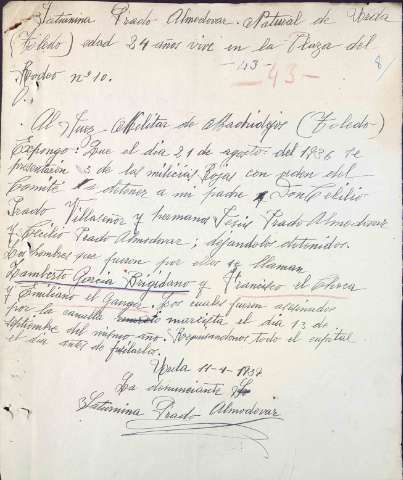 Saturnina Prado Almodovar. Natural de Urda
(Toledo) edad 24 años vive en la Plaza del
Rodeo nº 10.
-43-
-43-
Al Juez Militar de Madridejos (Toledo)
Expongo: Que el dia 21 de agosto del 1936 se
presentarón 3 de las milicias Rojas con orden del
Comité a detener a mi padre Don Cecilio
Prado Villaseñor y hermanos Jesús Prado Almodovar
y Cecilio Prado Almodovar; dejandolos detenidos.
Los hombres que fueron por ellos se llaman
Lamberto Garcia Brigidano y Francisco el Chuca
y Emiliano el Ganga; los cuales fueron asesinados
por la canalla marcista el dia 13 de
septiembre del mismo año. Requisandonos todo el capital
el dia antes de fusilarlos.
Urda 11-9-1939
La denunciante
Saturnina Prado Almodovar